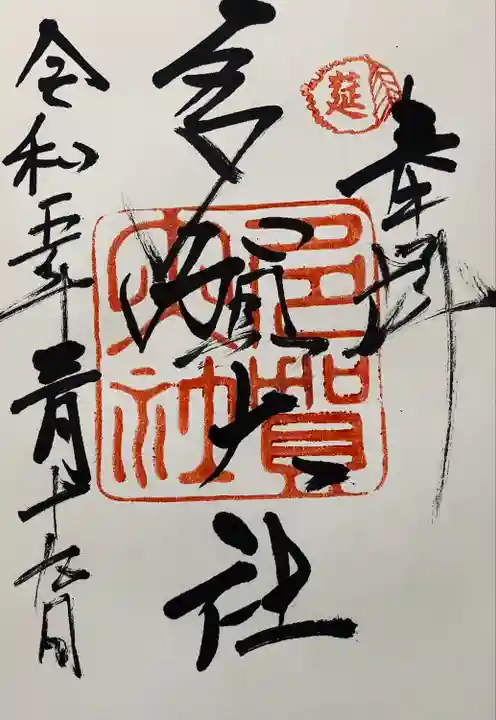 奉拝
延
多賀大社
多賀大社
令和五年三月十九日